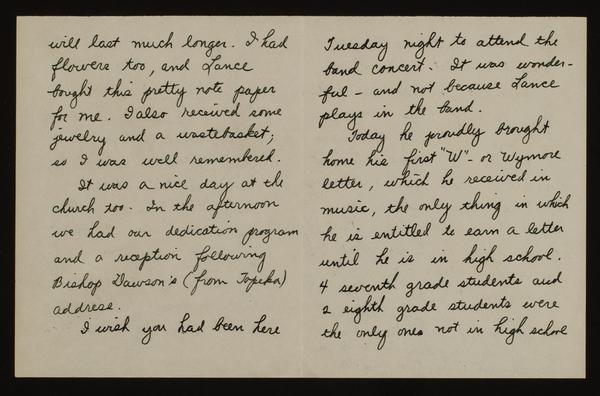 will last much longer. I had
flowers too, and Lance
bought this pretty note paper
for me. I also received some
jewelry and a wastebasket;
so I was well remembered.
It was a nice day at the
church too. In the afternoon
we had our dedication program
and a reception following
Bishop Dawson's (from Topeka)
address.
I wish you had been here
Tuesday night to attend the
band concert. It was wonder-
ful - and not because Lance
plays in the band.
Today he proudly brought
home his first "W" - or Wymore
letter, which he received in
music, the only thing in which
he is entitled to earn a letter
until he is in high school.
4 seventh grade students and
2 eighth grade students were
the only ones not in high school